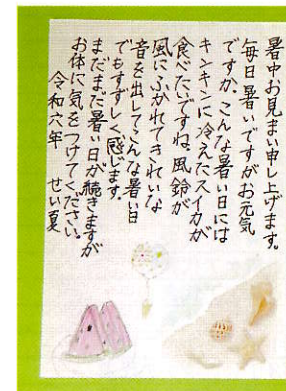 暑中お見まい申し上げます。
毎日暑いですがお元気
ですか。こんな暑い日には
キンキンに冷えたスイカが
食べたいですね。風鈴が
風にふかれてきれいな
音を出してこんな暑い日
でもすずしく感じます。
まだまだ暑い日が続きますが
お体に気をつけてください。
令和六年 せい夏